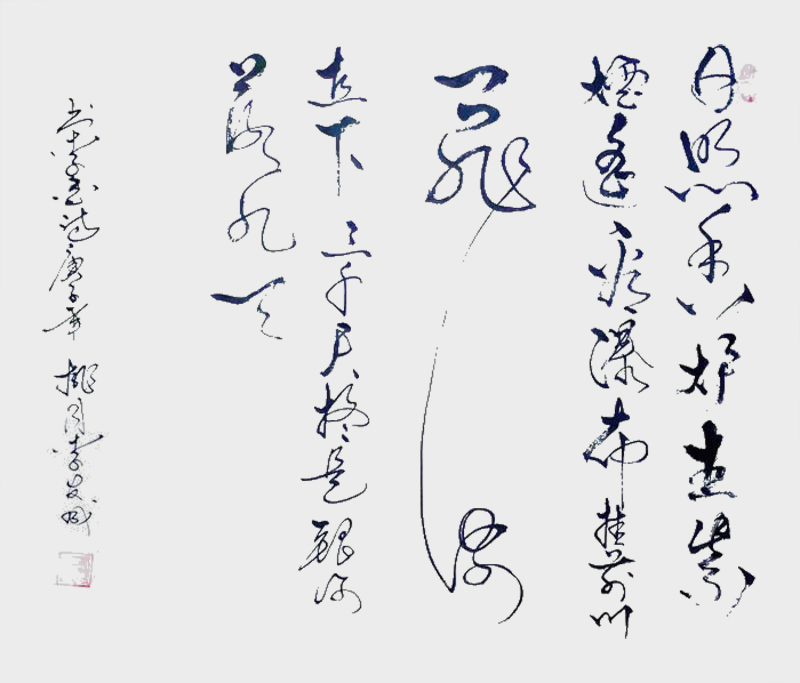 日照香炉生紫
煙遥看瀑布挂前川
飛流
直下三千尺疑是銀河
落九天
李白诗庚子年 桃月李友